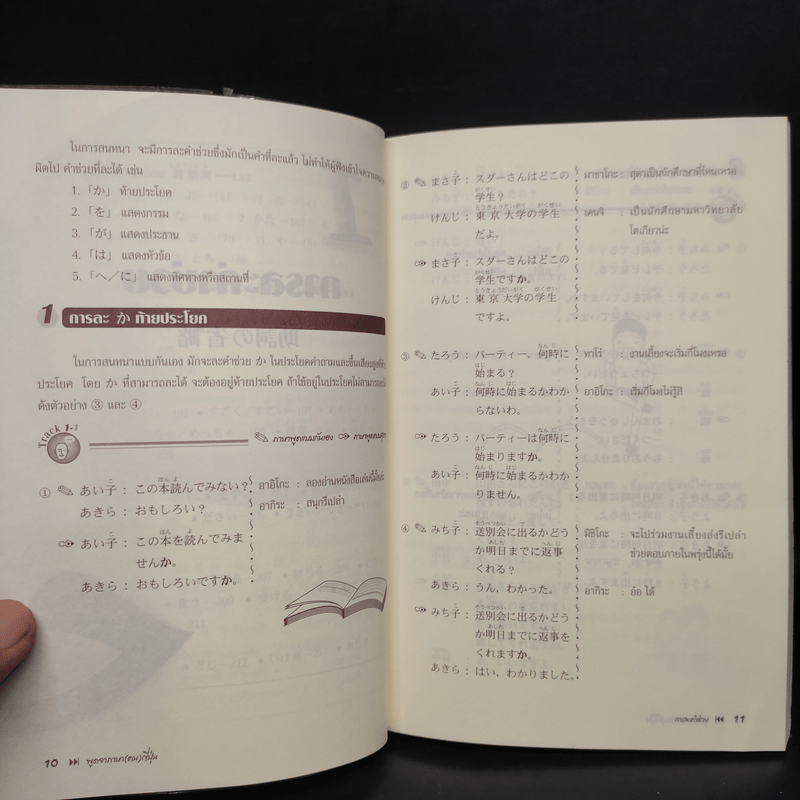 ในการสนทนา จะมีการละคำช่วยซึ่งมักเป็นคำที่ละแล้ว ไม่ทำให้ผู้ฟังเข้าใจความหมาย
ผิดไป คำช่วยที่ละได้ เช่น
1. 「か」 ท้ายประโยค
2. 「を」 แสดงกรรม
3. 「が」 แสดงประธาน
4. 「は」 แสดงหัวข้อ
5. 「へ／に」 แสดงทิศทางหรือสถานที่
1 การละ か ท้ายประโยค
ในการสนทนาแบบกันเอง มักจะละคำช่วย か ในประโยคคำถามและขึ้นเสียงสูงที่ท้าย
ประโยค โดย か ที่สามารถละได้ จะต้องอยู่ท้ายประโยค ถ้าใช้อยู่ในประโยคไม่สามารถละได้
ดังตัวอย่าง ③ และ ④
Track 1-1
ภาษาพูดแบบกันเอง ภาษาพูดแบบสุภาพ
① あい子 : この本読んでみない？ อาอิโกะ : ลองอ่านหนังสือเล่มนี้มั้ย
あきら : おもしろい？ อากิระ : สนุกรึเปล่า
あい子 : この本を読んでみま
せんか。
あきら : おもしろいですか。
10 พูดจาภาษา(คน)ญี่ปุ่น
② まさ子 : スダーさんはどこの มาซาโกะ : สุดาเป็นนักศึกษาที่ไหนเหรอ
学生？
けんじ : 東京大学の学生 เคนจิ : เป็นนักศึกษามหาวิทยาลัย
だよ。 โตเกียวน่ะ
まさ子 : スダーさんはどこの
学生ですか。
けんじ : 東京大学の学生
ですよ。
③ たろう : パーティー、何時に ทาโร่ : งานเลี้ยงจะเริ่มกี่โมงเหรอ
始まる？
あい子 : 何時に始まるかわか อาอิโกะ : เริ่มกี่โมงไม่รู้สิ
らないわ。
たろう : パーティーは何時に
始まりますか。
あい子 : 何時に始まるかわか
りません。
④ みち子 : 送別会に出るかどう มิชิโกะ : จะไปร่วมงานเลี้ยงส่งรึเปล่า
か明日までに返事 ช่วยตอบภายในพรุ่งนี้ได้มั้ย
くれる？
あきら : うん、わかった。 อากิระ : อ๋อ ได้
みち子 : 送別会に出るかどう
か明日までに返事を
くれますか。
あきら : はい、わかりました。
การละคำช่วย 11